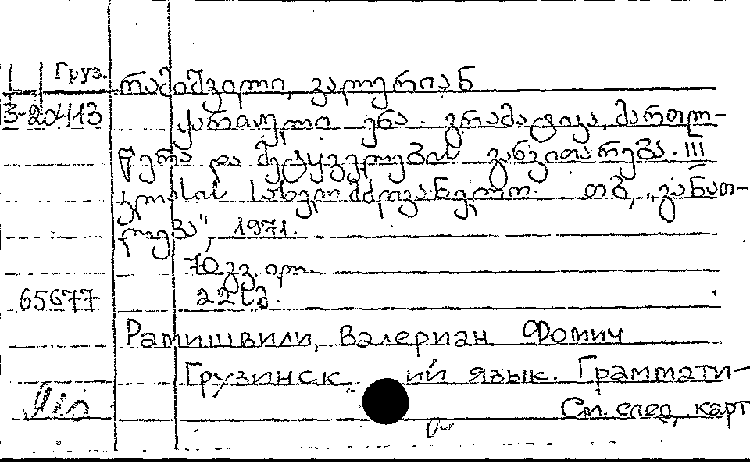 Груз.
რამიშვილი, ვალერიან
3-20413 ქართული ენა. გრამატიკა, მართლ-
წერა და მეტყველების განვითარება. III
კლასის სახელმძღვანელო. თბ., „განათ-
ლება", 1971.
70 გვ. ილ.
65677 22 სმ.
Рамишвили, Валериан Фомич
Грузинск ий язык. Граммати-
См. след. карт